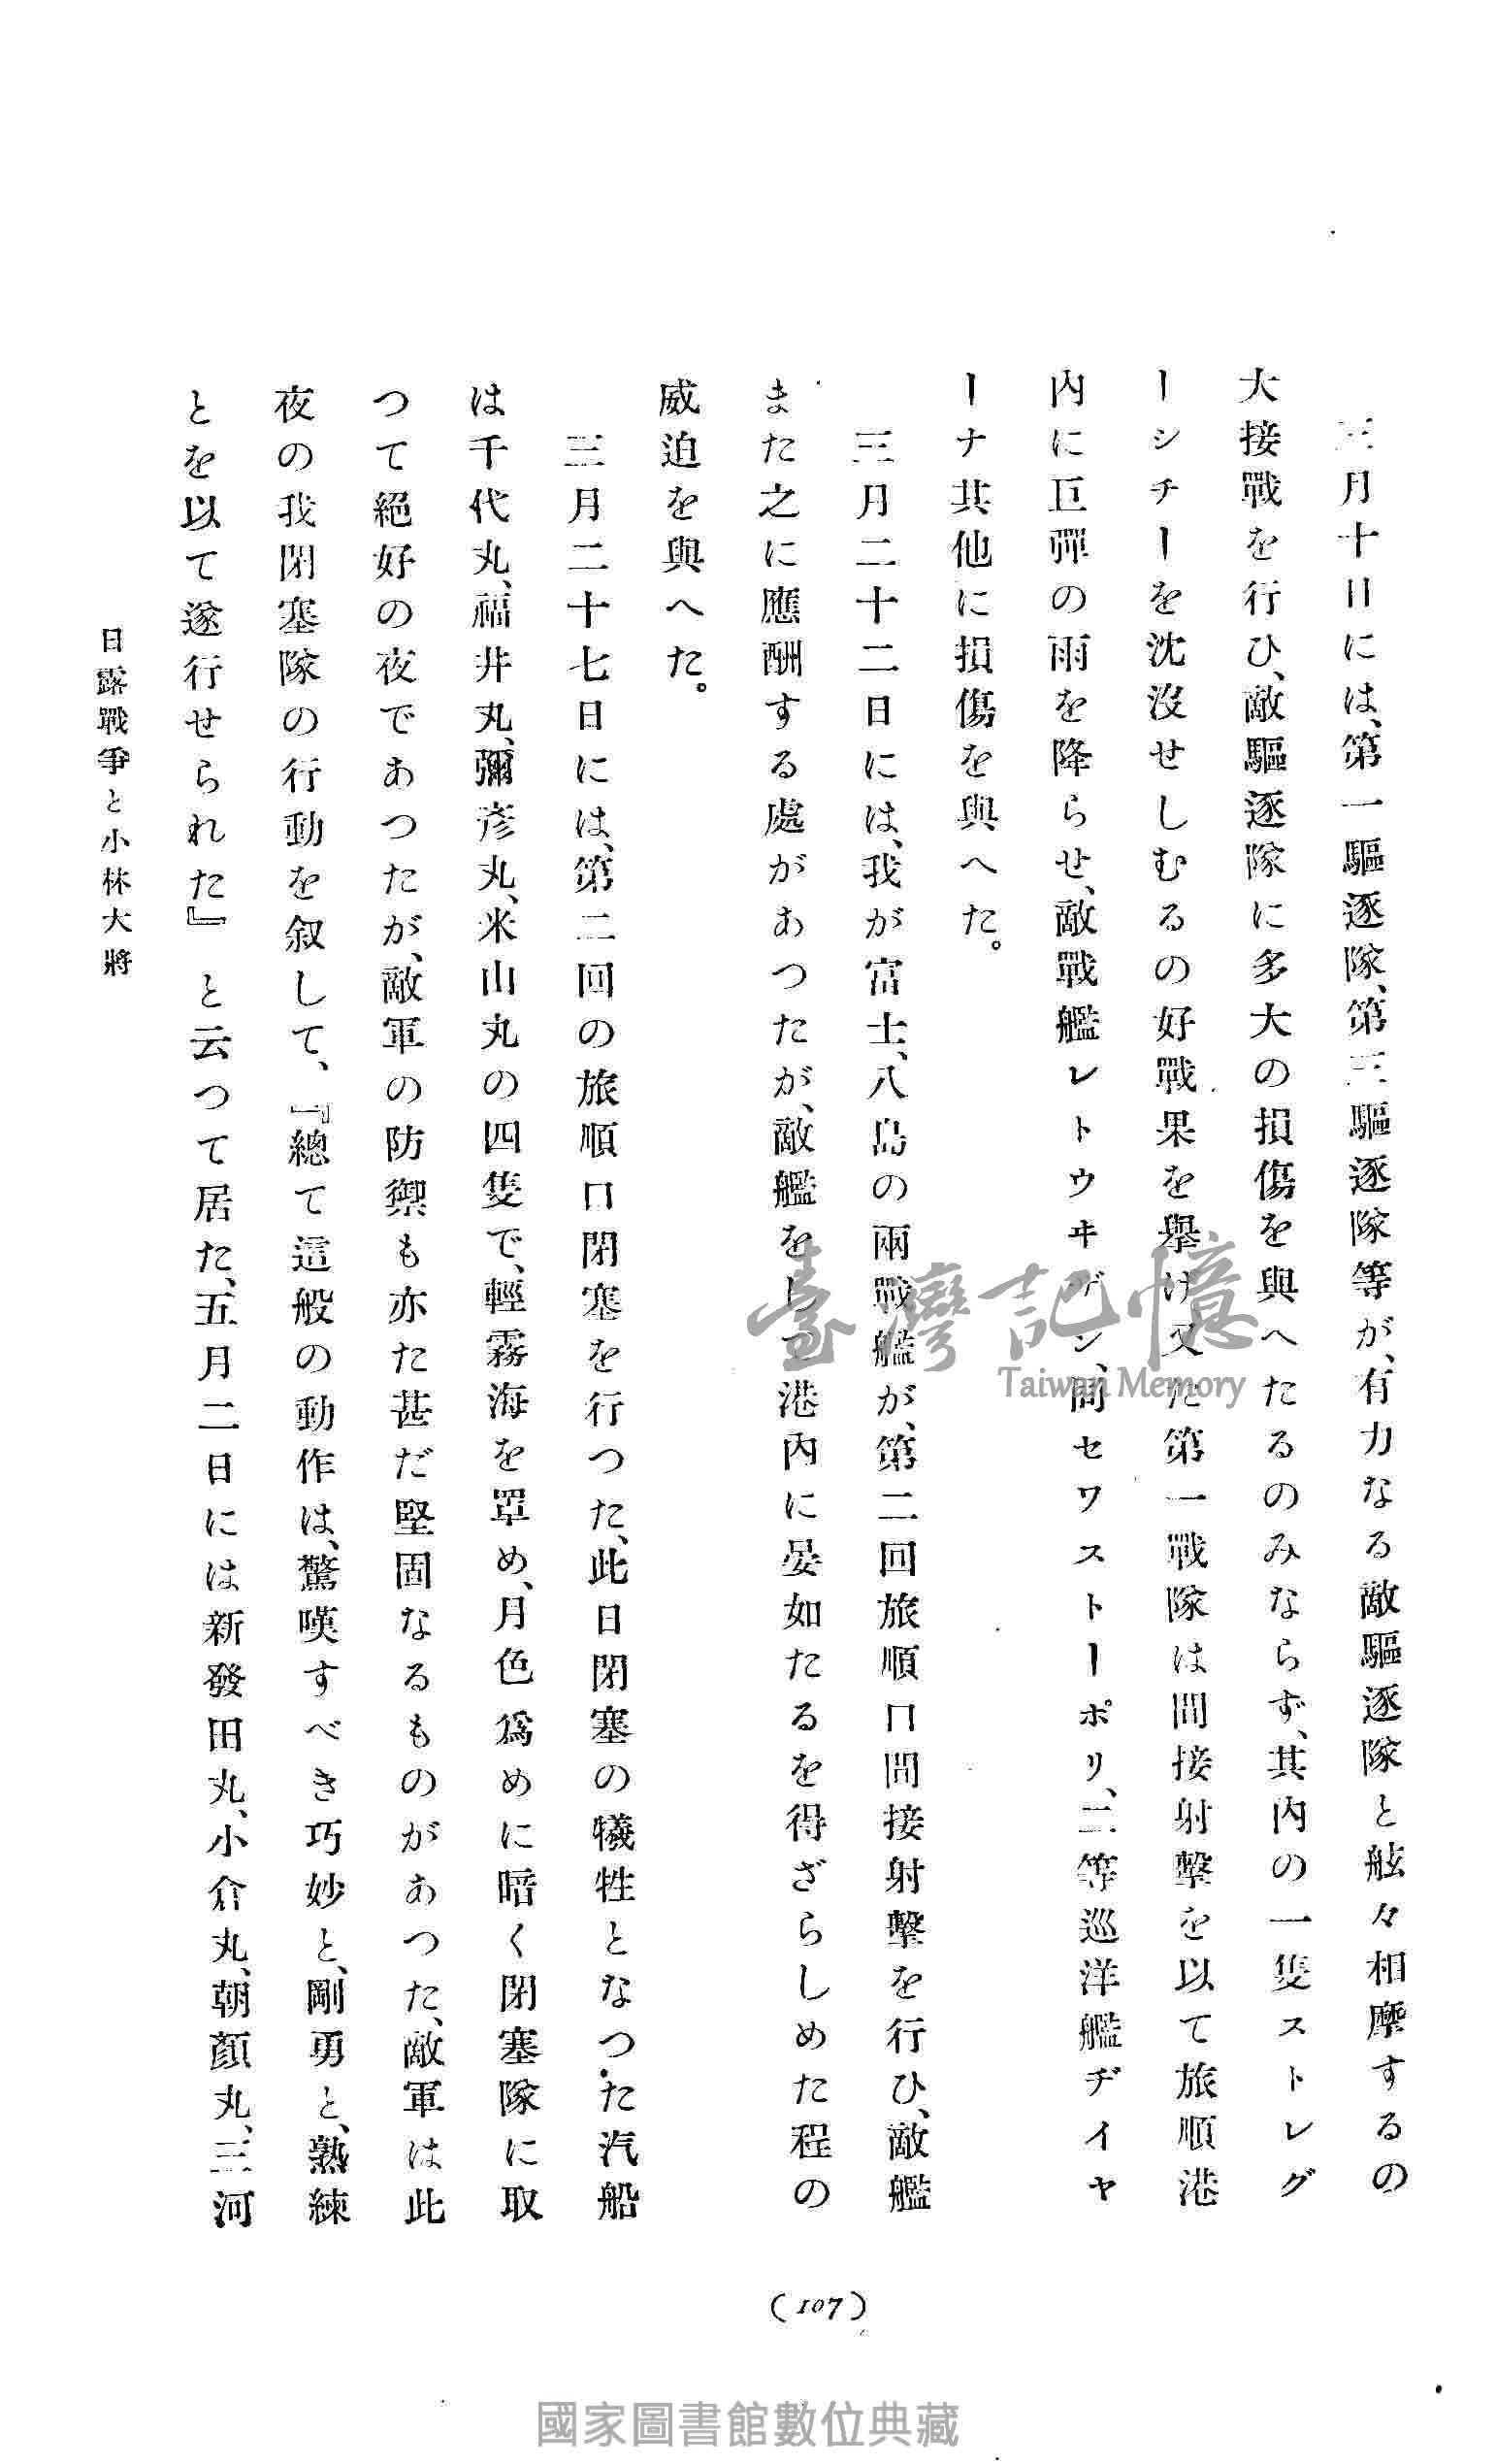 三月十日には、第一驅逐隊、第三驅逐隊等が、有力なる敵驅逐隊と舷々相摩するの
大接戰を行ひ、敵驅逐隊に多大の損傷を與へたるのみならず、其內の一隻ストレグ
ーシチーを沈沒せしむるの好戰果を擧げ又た第一戰隊は間接射擊を以て旅順港
內に巨彈の雨を降らせ、敵戰艦レトウヰザン、同セワストーポリ、二等巡洋艦ヂイヤ
ーナ其他に損傷を與へた。
三月二十二日には、我が富士、八島の兩戰艦が、第二回旅順口間接射擊を行ひ、敵艦
また之に應酬する處があつたが、敵艦をして港內に晏如たるを得ざらしめた程の
威迫を與へた。
三月二十七日には、第二回の旅順口閉塞を行つた、此日閉塞の犧牲となつた汽船
は千代丸、福井丸、彌彥丸、米山丸の四隻で、輕霧海を罩め、月色爲めに暗く閉塞隊に取
つて絕好の夜であつたが、敵軍の防禦も亦た甚だ堅固なるものがあつた、敵軍は此
夜の我閉塞隊の行動を叙して、『總て這般の動作は、驚嘆すべき巧妙と、剛勇と、熟練
とを以て遂行せられた』と云つて居た、五月二日には新發田丸、小倉丸、朝顏丸、三河
日露戰爭と小林大將
(107)
臺灣記憶
Taiwan Memory
國家圖書館數位典藏